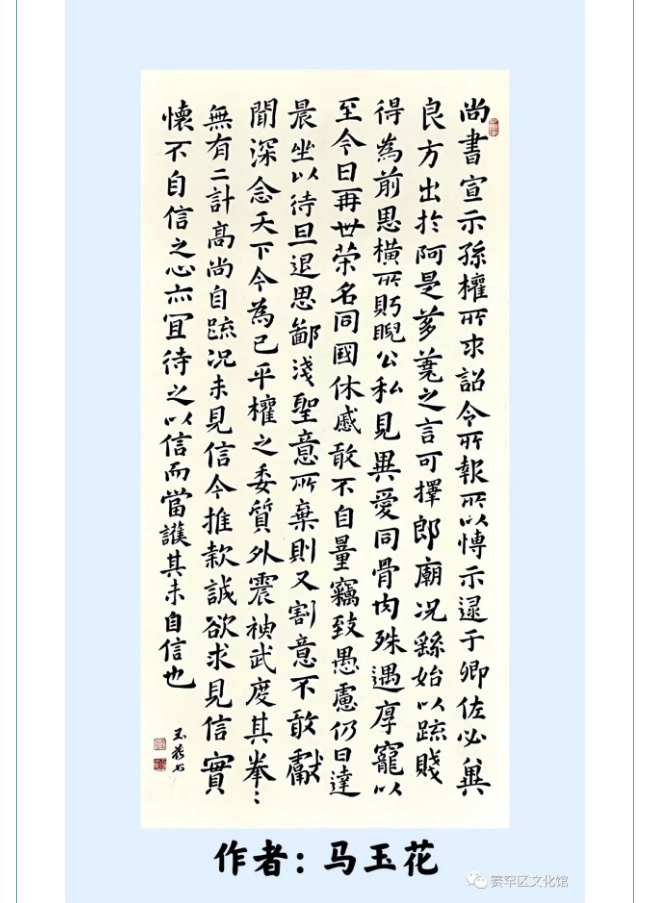 尚書宣示孫權所求詔令所報所以博示逮于卿佐必冀
良方出於阿是芻蕘之言可擇郎廟況繇始以疏賤
得為前恩橫所眄睨公私見異愛同骨肉殊遇厚寵以
至今日再世榮名同國休慼敢不自量竊致愚慮仍日達
晨坐以待旦退思鄙淺聖意所棄則又割意不敢獻
聞深念天下今為已平權之委質外震神武度其拳:
無有二計高尚自疏況未見信今推款誠欲求見信實
懷不自信之心亦宜待之以信而當護其未自信也
玉花
作者：马玉花
赛罕区文化馆